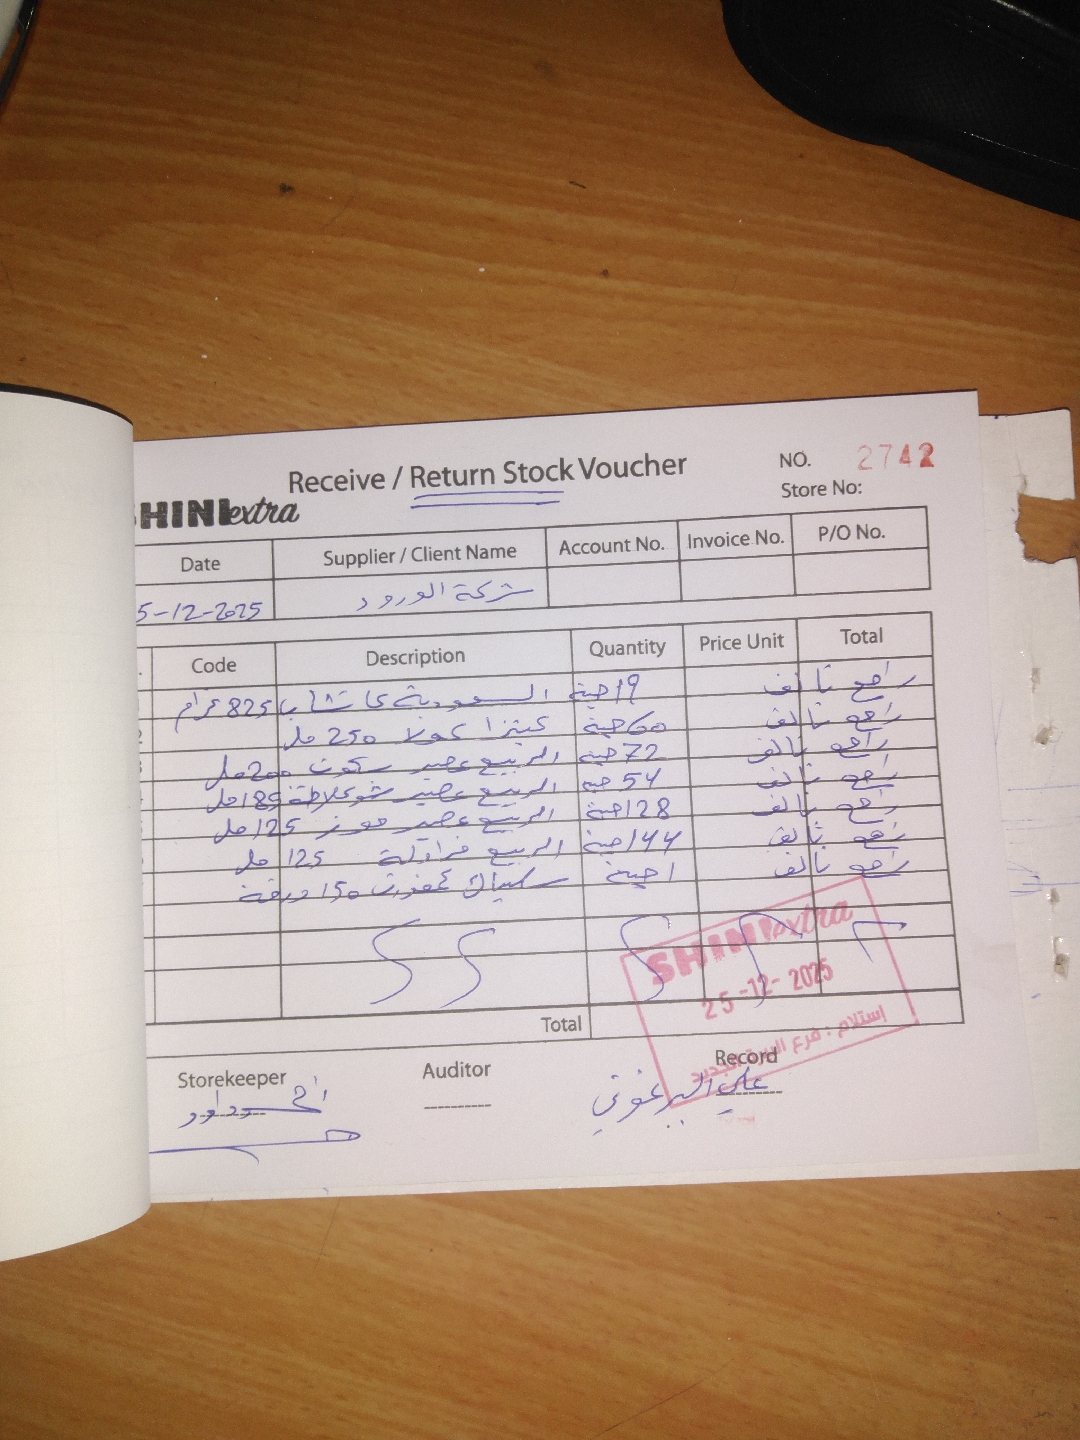 Receive / Return Stock Voucher
NO. 2742
Store No:
HINI extra
Date Supplier / Client Name Account No. Invoice No. P/O No.
5-12-2025 شركة الورود
Code Description Quantity Price Unit Total
السعودية كاتشاب 825 غرام 19 حبة راجع تالف
كينزا كولا 250 مل 60 حبة راجع تالف
الربيع عصير سكوت 200 مل 72 حبة راجع تالف
الربيع عصير شوكلاطة 185 مل 54 حبة راجع تالف
الربيع عصير موز 125 مل 128 حبة راجع تالف
الربيع فراولة 125 مل 144 حبة راجع تالف
كمفورت 150 ورقة 1 حبة راجع تالف
SHINI extra
25-12-2025
إستلام : فرع الجديد
Total
Storekeeper Auditor Record
داود علي البرغوثي